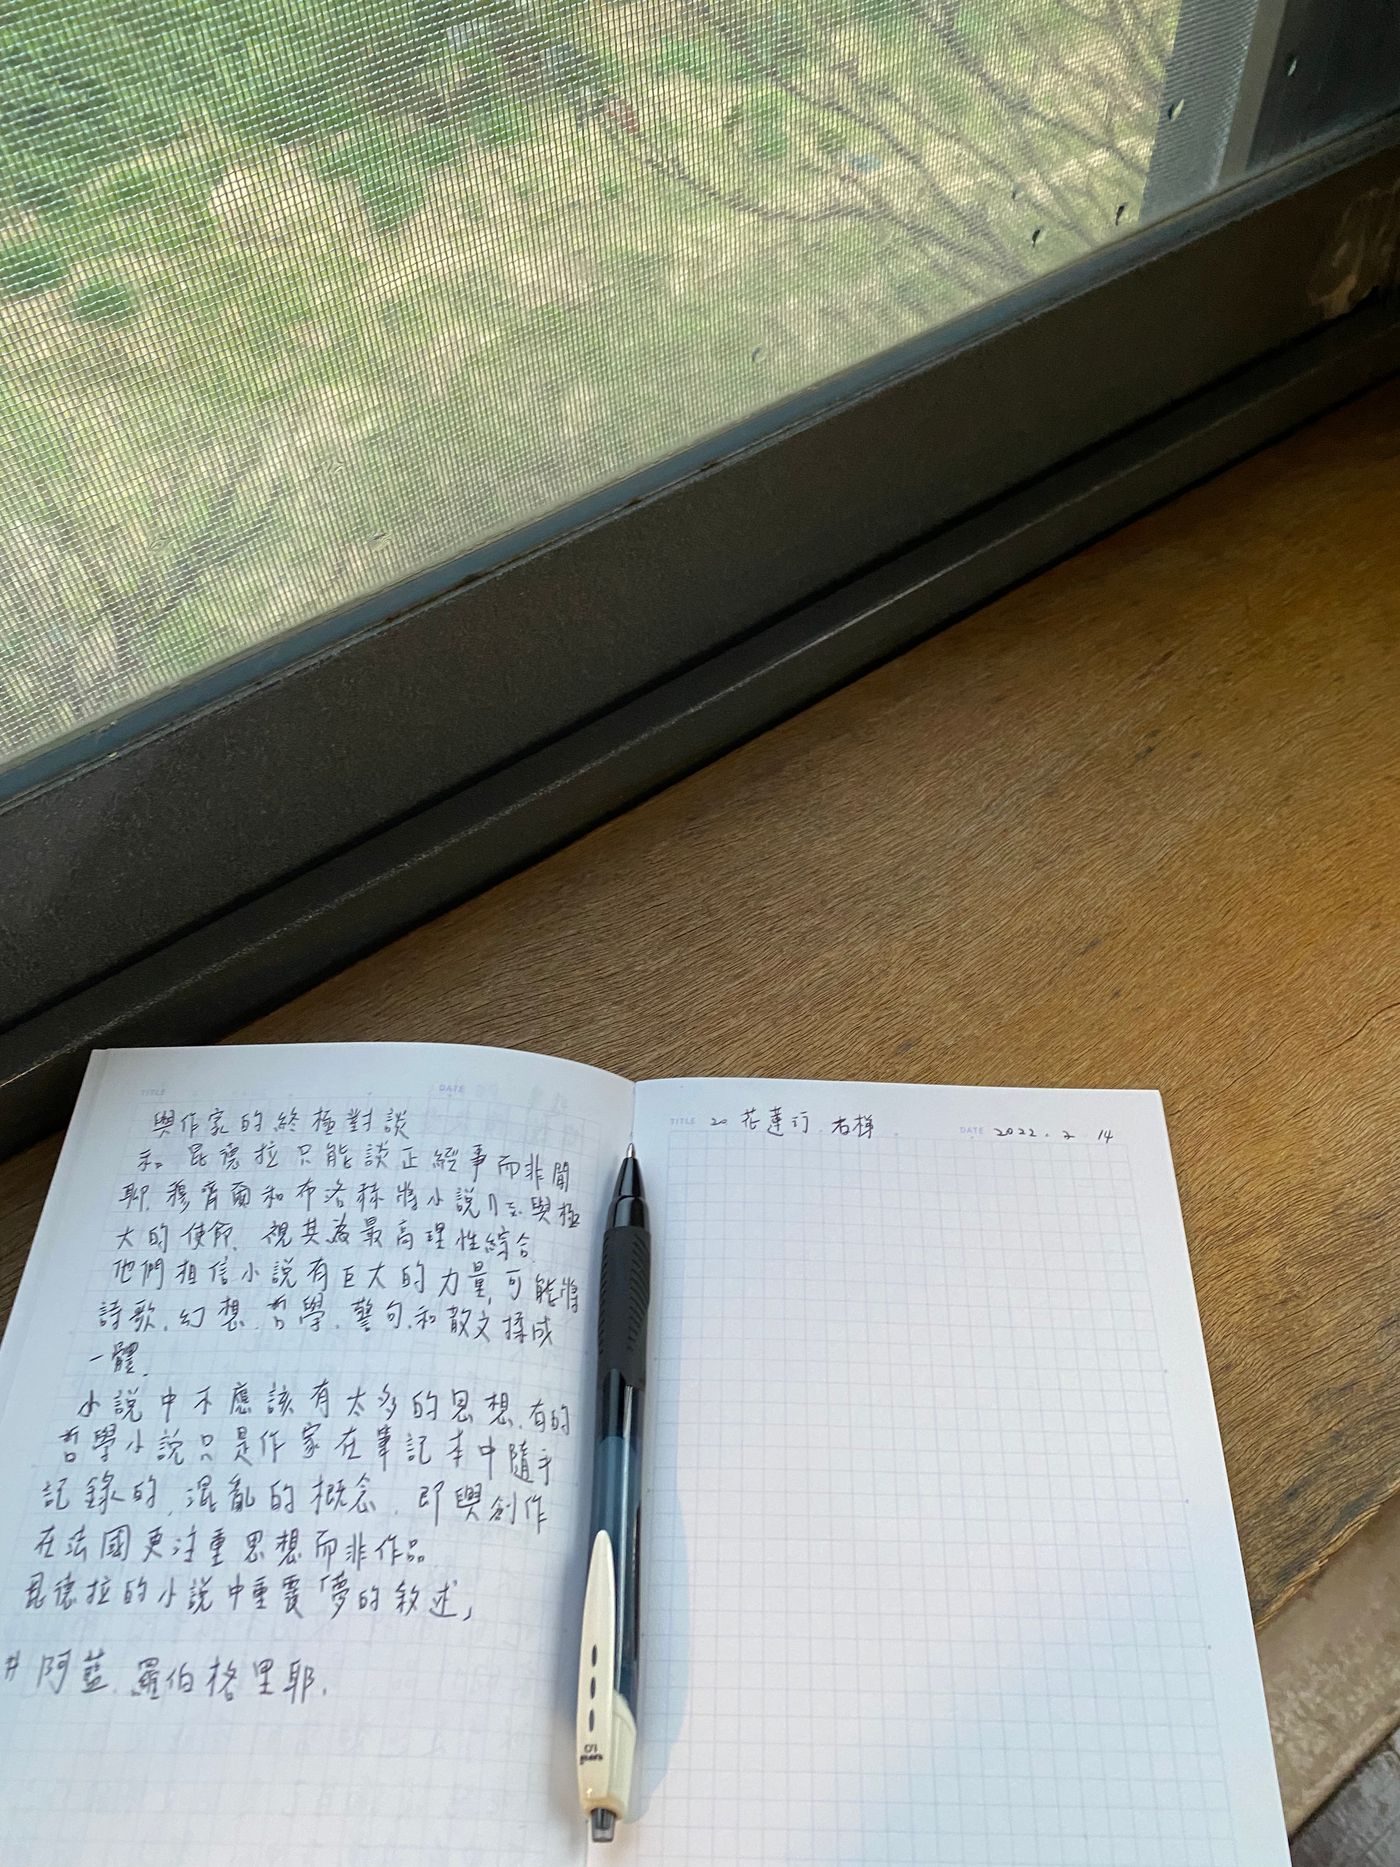 TITLE DATE
與作家的終極對談
和昆德拉只能談正經事而非閒
聊.穆齊爾和布洛赫將小說 與極
大的使命.視其為最高理性綜合.
他們相信小說有巨大的力量,可能將
詩歌.幻想.哲學.警句.和散文揉成
一體.
小說中不應該有太多的思想.有的
哲學小說只是作家在筆記本中隨手
記錄的.混亂的概念.即興創作
在法國更注重思想而非作品
昆德拉的小說中重要「夢的敘述」
#阿藍.羅伯格里耶.
TITLE 20 花蓮行.右梯 DATE 2022.2.14
uni 1.0